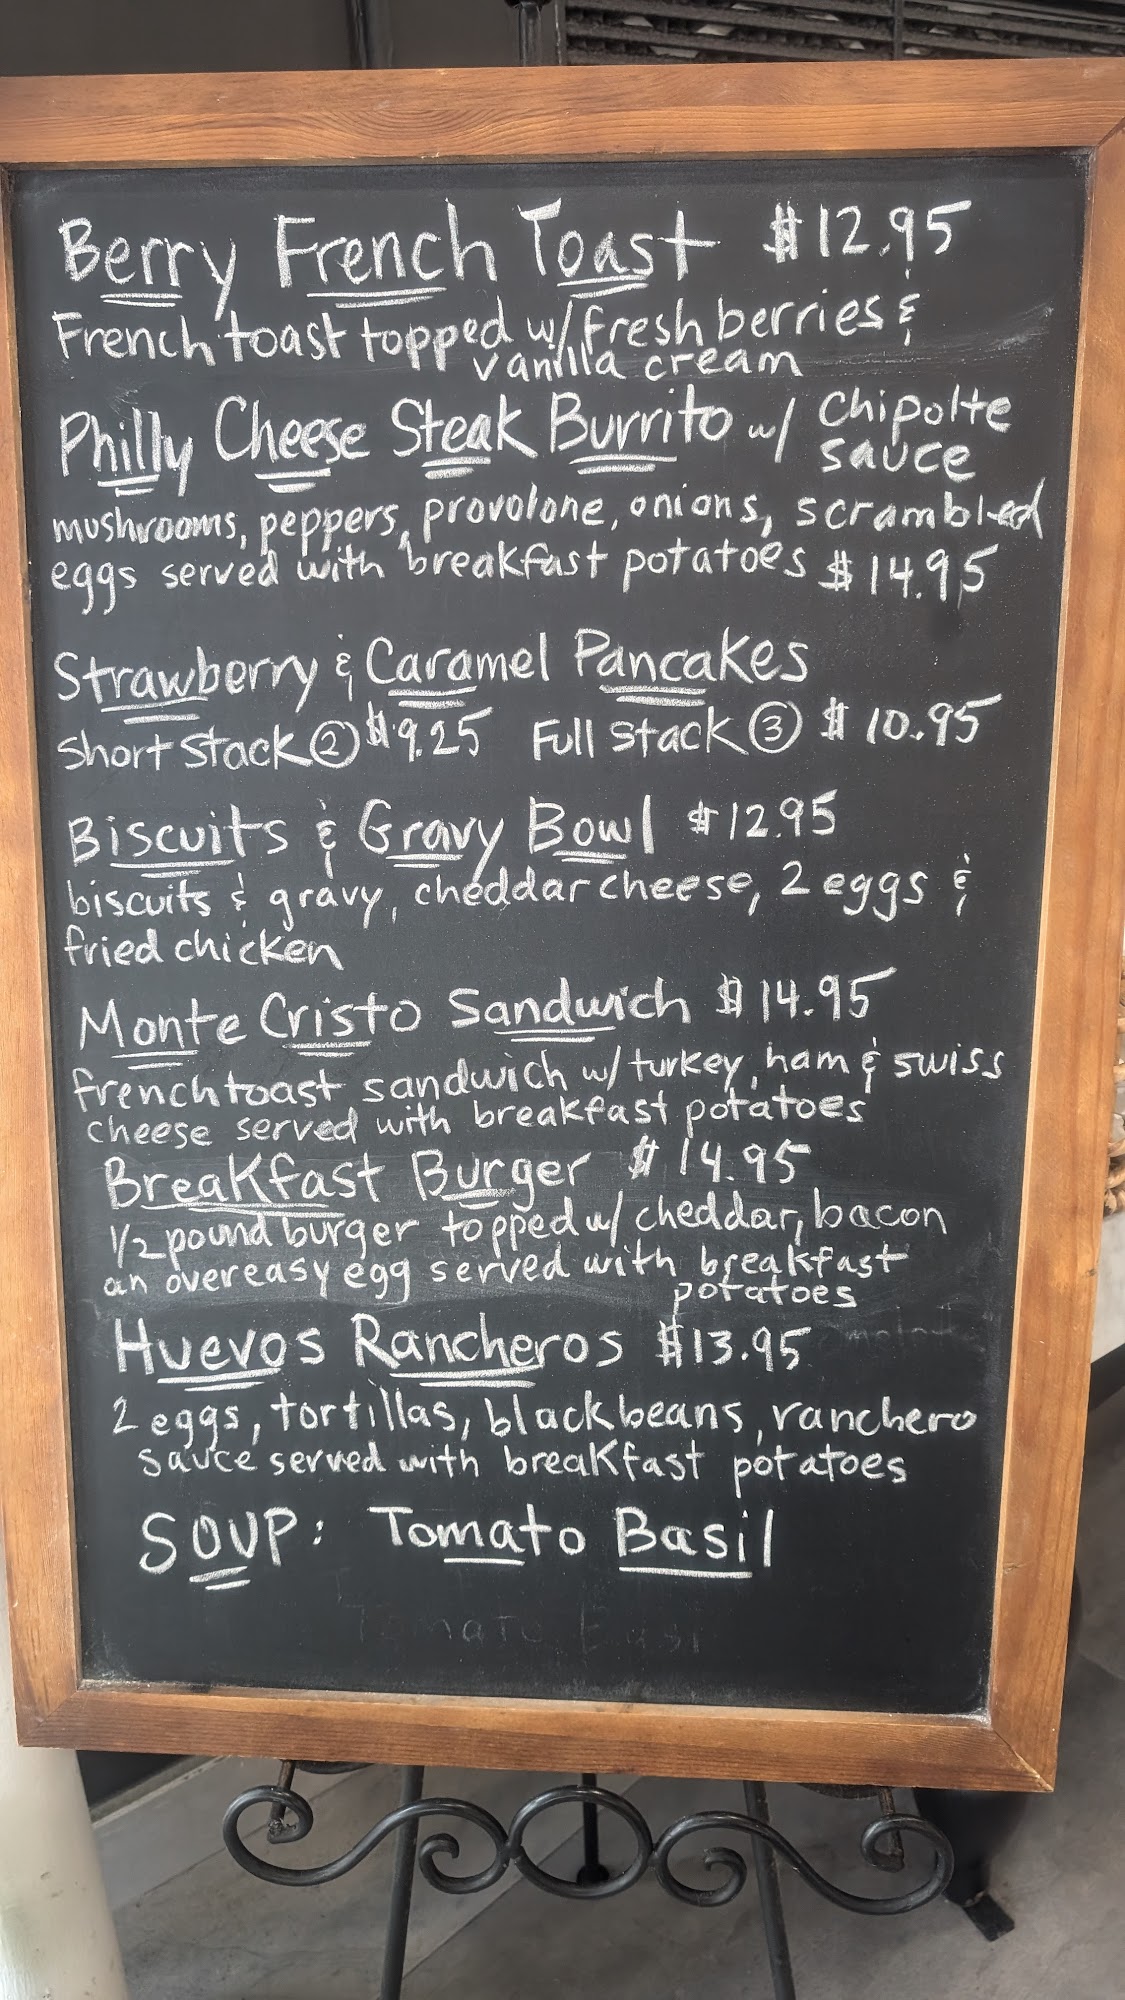 Berry French Toast $12.95
French toast topped w/ fresh berries &
vanilla cream
Philly Cheese Steak Burrito w/ Chipolte
sauce
mushrooms, peppers, provolone, onions, scrambled
eggs served with breakfast potatoes $14.95
Strawberry & Caramel Pancakes
Short Stack ② $9.25 Full Stack ③ $10.95
Biscuits & Gravy Bowl $12.95
biscuits & gravy, cheddar cheese, 2 eggs &
fried chicken
Monte Cristo Sandwich $14.95
french toast sandwich w/ turkey, ham & swiss
cheese served with breakfast potatoes
Breakfast Burger $14.95
1/2 pound burger topped w/ cheddar, bacon
an overeasy egg served with breakfast
potatoes
Huevos Rancheros $13.95
2 eggs, tortillas, black beans, ranchero
sauce served with breakfast potatoes
SOUP: Tomato Basil